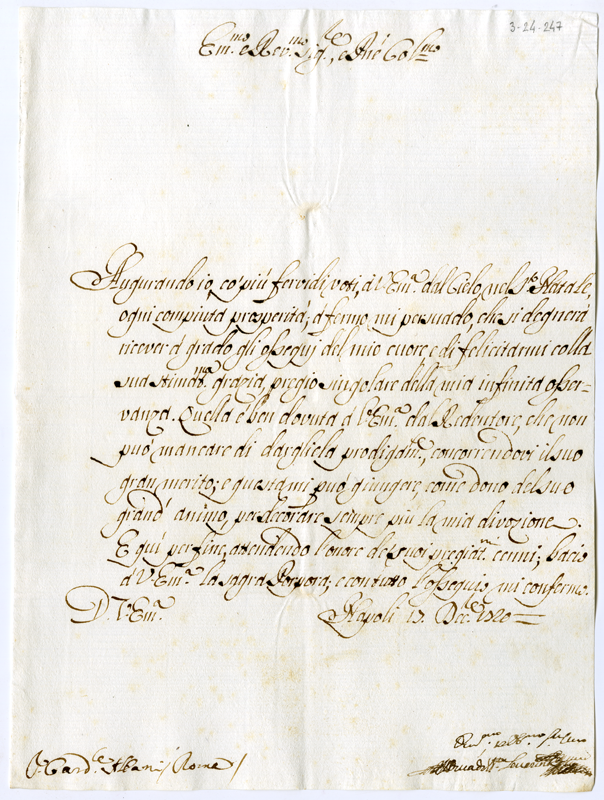 3-24-247
Em.mo e Rev.mo Sig.re, e P̃rone Col.mo
Augurando io, co' più fervidi voti, à V. Em.a dal Cielo, nel S.to Natale,
ogni compiuta prosperità; à fermo mi persuado, che si degnerà
ricever à grado gli ossequj del mio cuore e di felicitarmi colla
sua stimat.ma grazia, pregio singolare della mia infinita osser-
vanza. Quella è ben dovuta à V. Em.a dal Redentore, che non
può mancare di dargliela prodigam.te, concorrendovi il suo
gran merito; e questa mi può giungere, come dono del suo
grand' animo, per decorare sempre più la mia divozione.
E quì per fine, attendendo l'onore de' suoi pregiat.mi cenni; bacio
à V. Em.a la sagra Porpora; e con tutto l'ossequio mi confermo.
D. V. Em.a Napoli 17. Dec.e 1720
S. Card.le Albani / Roma /